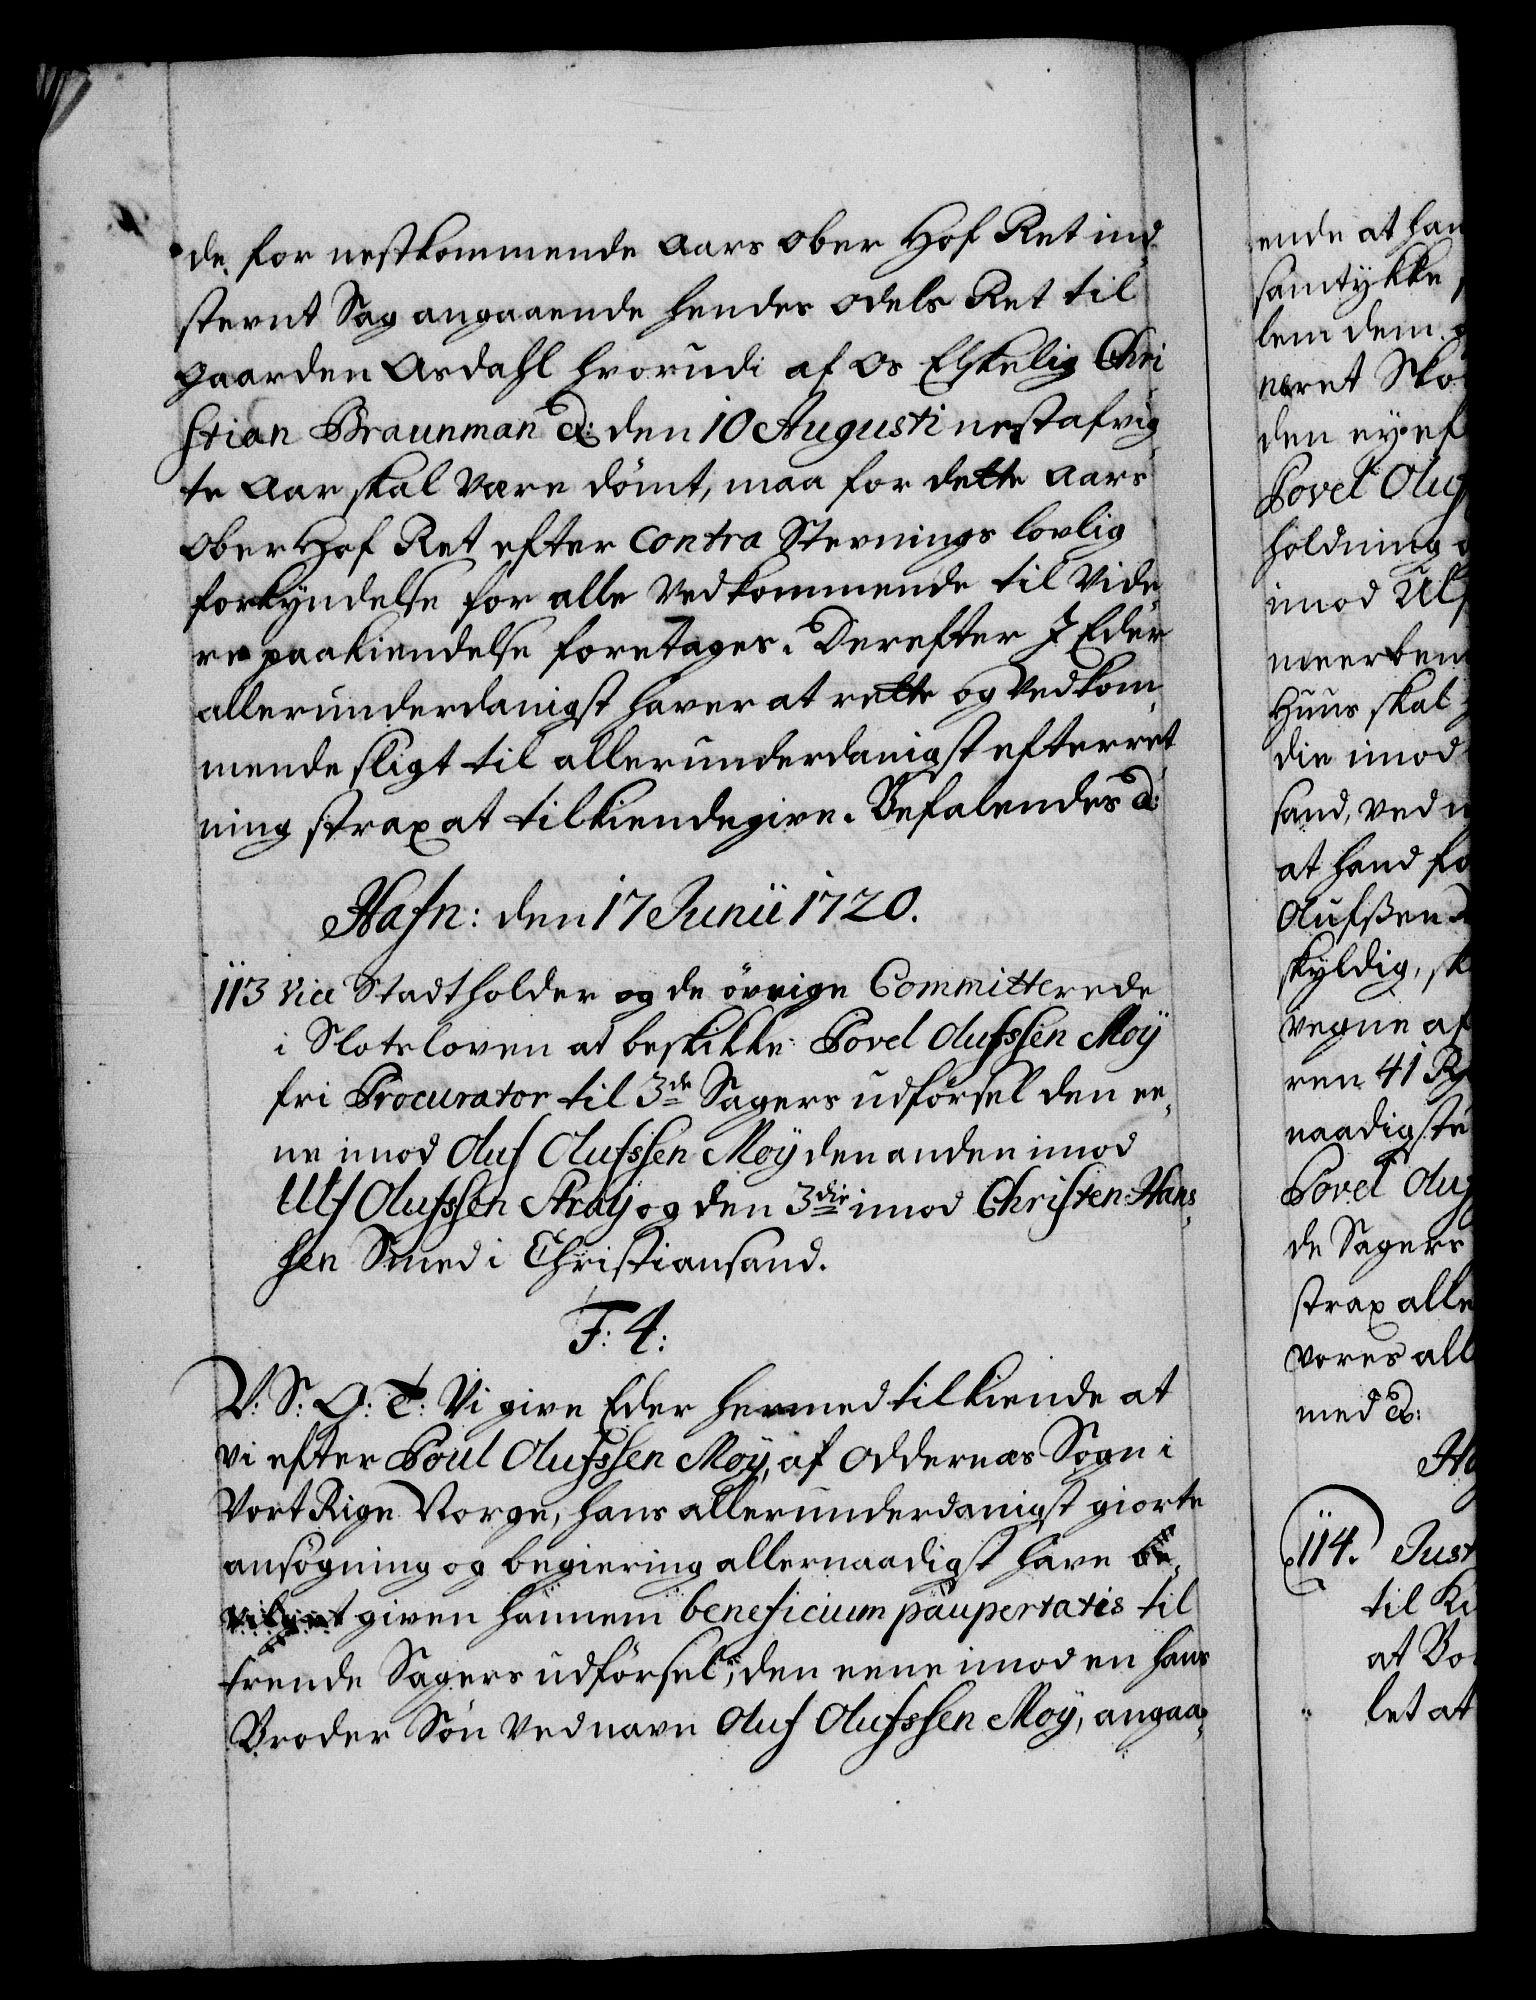 de for nestkommende Aars Ober Hof Ret ind
stevnt Sag angaaende hendes Odels Ret til
gaarden Asdahl hvorudi af Os Elskelig Chri
stian Braunman &: den 10 Augusti nest afvig
te Aar skal være dömt, maa for dette Aars
Ober Hof Ret efter Contra Stevnings lovlig
forkyndelse for alle Vedkommende til Vide
re paakiendelse foretages. Derefter I Eder
allerunderdanigst haver at rette og Vedkom
mende sligt til allerunderdanigst efterret
ning strax at tilkiendegive. Befalendes &:
Hafn: den 17 Junii 1720.
113 Vice Stadtholder og de övrige Committerede
i Slotsloven at beskikke Povel Olufssen Moÿ
fri Procurator til 3de Sagers udförsel den ee,
ne imod Oluf Olufssen Moÿ den anden imod
Ulf Olufssen Straÿ og den 3die imod Christen Hans,
sen Smed i Christiansand.
F: 4:
V: S: G: T: Vi give Eder hermed tilkiende at
Vi efter Poul Olufssen Moÿ, af Oddernæs Sogn i
Vort Rige Norge, hans allerunderdanigst giorte
ansögning og begiering allernaadigst have be,
vilget given hannem beneficium paupertatis til
trende Sagers udförsel, den eene imod en hans
Broder Sön ved navn Oluf Olufssen Moÿ, angaa,
ende at han
samtykke
lem dem
været Sko
den eÿ ef
Povel Oluf
holdning
imod Ulf
meerbem
Huus skal
die imod
sand, ved
at hand fo
Olufßen
skyldig, sk
vegne af
ren 41 R
naadigste
Povel Oluf
de Sagers
strax alle
Vores all
med &:
Ha
114. Just
til Ki
at Bo
let at